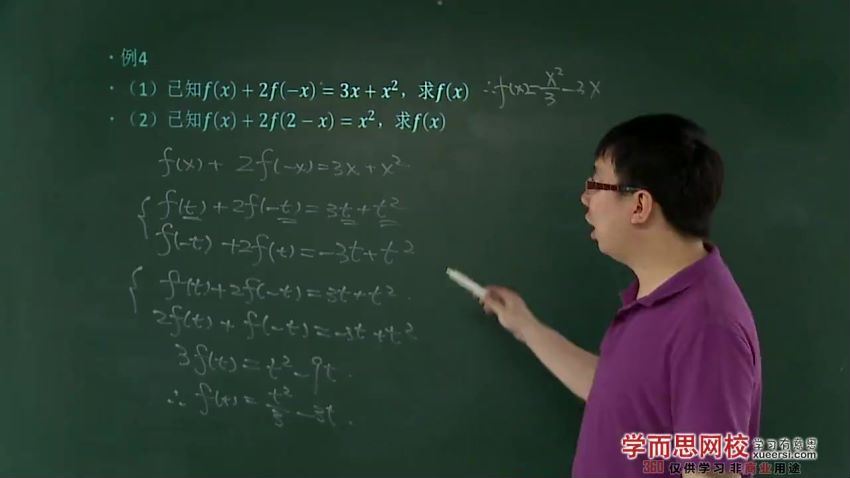 · 例4
· （1）已知f(x) + 2f(−x) = 3x + x²，求f(x) ∴f(x)=x²/3−3x
· （2）已知f(x) + 2f(2 − x) = x²，求f(x)
f(x)+ 2f(-x)=3x+x²
f(t)+2f(-t)=3t+t²
f(-t)+2f(t)=-3t+t²
f(t)+2f(-t)=3t+t².
2f(t)+f(-t)=-3t+t²
3f(t)=t²-9t.
∴ f(t)=t²/3-3t.
学而思网校 学习有意思
xueersi.com
360 仅供学习 非商业用途